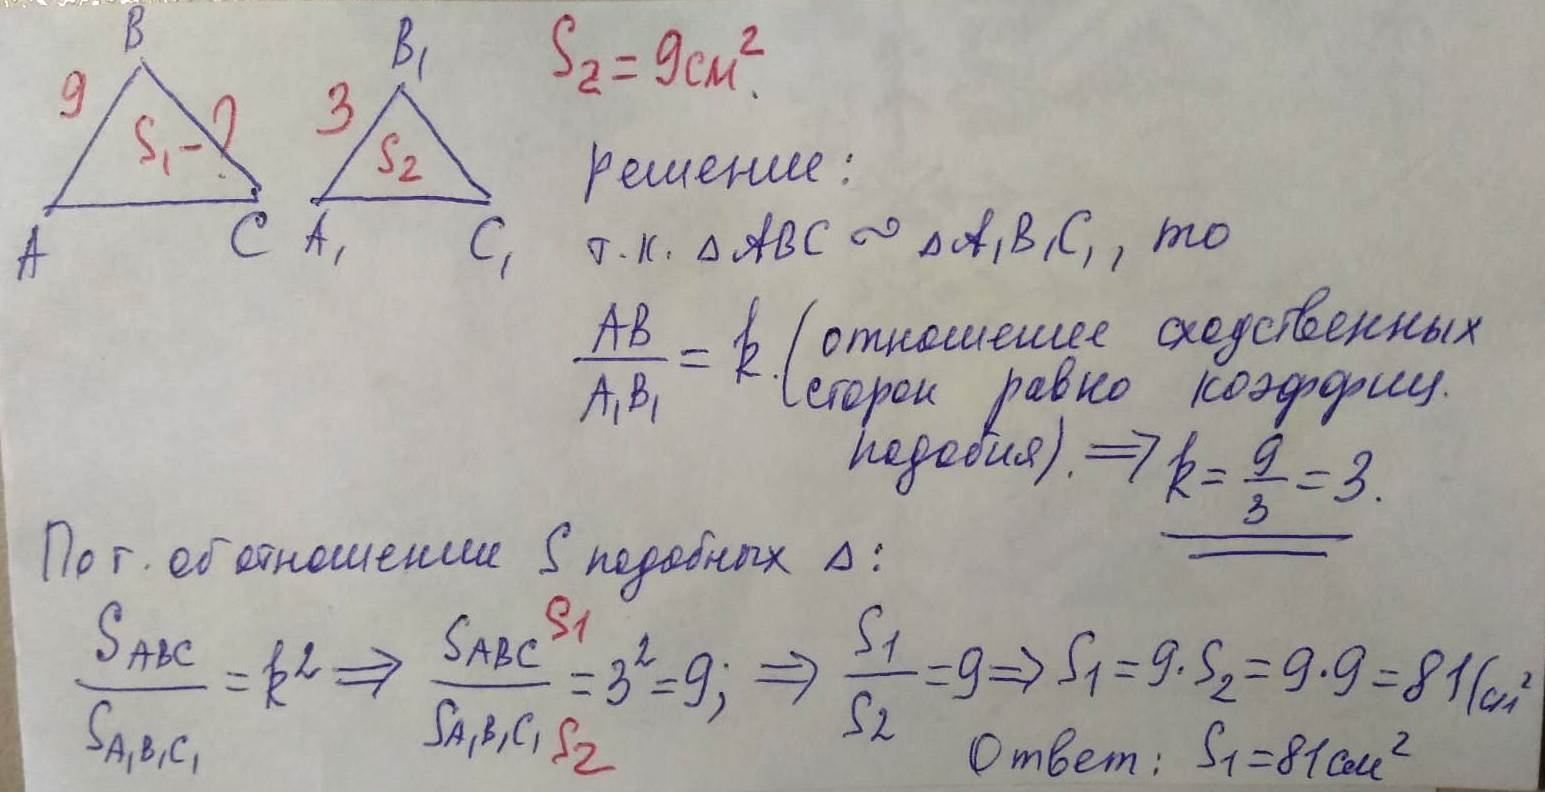 B
B₁
S₂ = 9см².
9
3
S₁ - ?
S₂
A
C
A₁
C₁
решение:
т.к. △ABC ∾ △A₁B₁C₁, то
AB/A₁B₁ = k. (отношение сходственных
сторон равно коэффиц.
подобия). ⇒ k = 9/3 = 3.
По т. об отношении S подобных △:
S_ABC/S_A₁B₁C₁ = k² ⇒ S_ABC S1/S_A₁B₁C₁ S2 = 3² = 9; ⇒ S1/S2 = 9 ⇒ S1 = 9·S2 = 9·9 = 81(см²
Ответ: S1 = 81см²